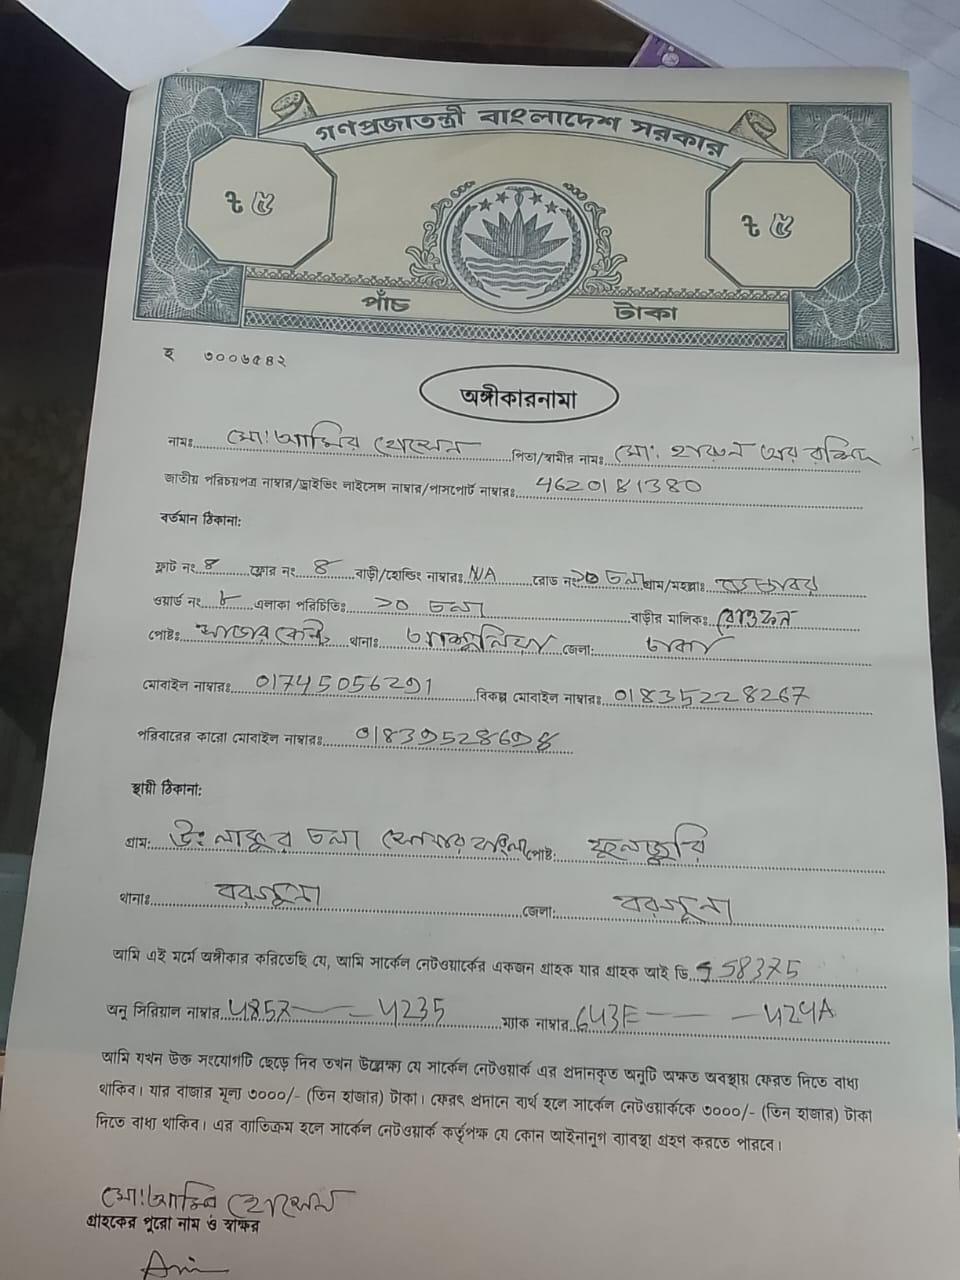 গণপ্রজাতন্ত্রী বাংলাদেশ সরকার
৳ ৫
৳ ৫
পাঁচ টাকা
হ ৩০০৬৫৪২
অঙ্গীকারনামা
নামঃ মো: আমির হোসেন পিতা/স্বামীর নামঃ মো: হারুন অর রশিদ
জাতীয় পরিচয়পত্র নাম্বার/ড্রাইভিং লাইসেন্স নাম্বার/পাসপোর্ট নাম্বারঃ 4620181380
বর্তমান ঠিকানা:
ফ্লাট নং ৪ ফ্লোর নং ৪ বাড়ী/হোল্ডিং নাম্বারঃ N/A রোড নং ১০ তলা গ্রাম/মহল্লাঃ
ওয়ার্ড নং ৮ এলাকা পরিচিতিঃ ১০ তলা বাড়ীর মালিকঃ
পোষ্টঃ থানাঃ আশুলিয়া জেলা: ঢাকা
মোবাইল নাম্বারঃ 01745056291 বিকল্প মোবাইল নাম্বারঃ 01835228267
পরিবারের কারো মোবাইল নাম্বারঃ
স্থায়ী ঠিকানা:
গ্রাম: উঃ তলা পোষ্ট: ফুলঝুরি
থানাঃ বরগুনা জেলা: বরগুনা
আমি এই মর্মে অঙ্গীকার করিতেছি যে, আমি সার্কেল নেটওয়ার্কের একজন গ্রাহক যার গ্রাহক আই ডি 58375
অনু সিরিয়াল নাম্বার 4857 — – 4235 ম্যাক নাম্বার 643E — – 424A
আমি যখন উক্ত সংযোগটি ছেড়ে দিব তখন উল্লেক্ষ্য যে সার্কেল নেটওয়ার্ক এর প্রদানকৃত অনুটি অক্ষত অবস্থায় ফেরত দিতে বাধ্য
থাকিব। যার বাজার মূল্য ৩০০০/- (তিন হাজার) টাকা। ফেরৎ প্রদানে ব্যর্থ হলে সার্কেল নেটওয়ার্ককে ৩০০০/- (তিন হাজার) টাকা
দিতে বাধ্য থাকিব। এর ব্যতিক্রম হলে সার্কেল নেটওয়ার্ক কর্তৃপক্ষ যে কোন আইনানুগ ব্যবস্থা গ্রহণ করতে পারবে।
মো: আমির হোসেন
গ্রাহকের পুরো নাম ও স্বাক্ষর